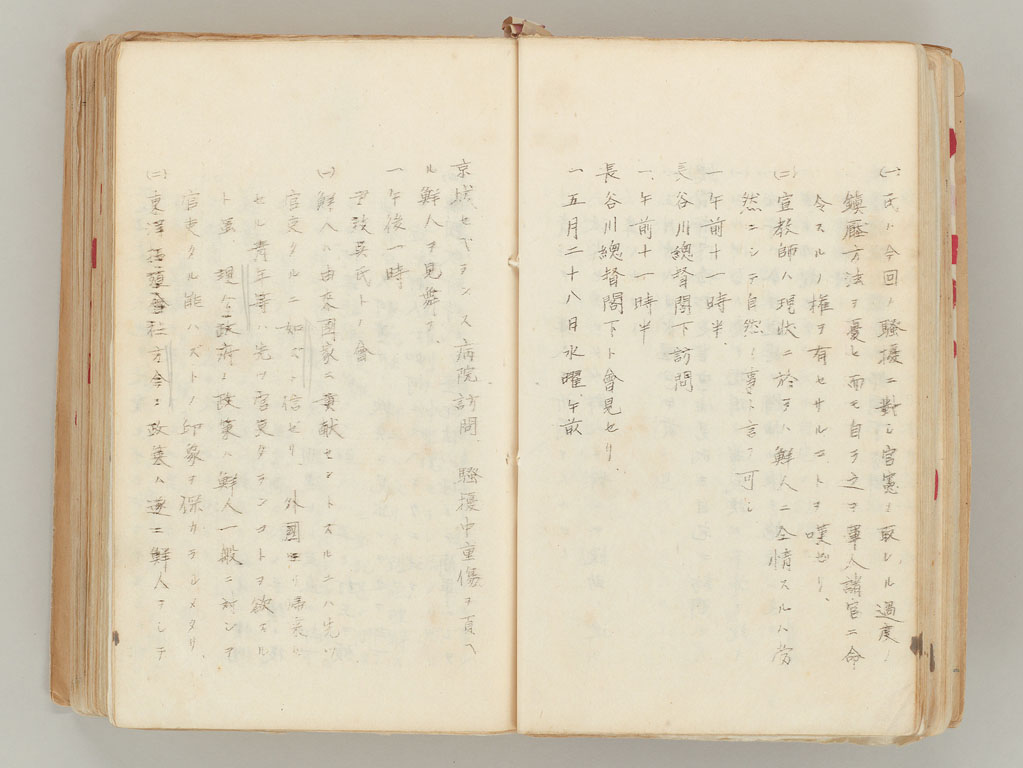 (一)氏ハ今回ノ騒擾ニ對シ官憲ノ取レル過度ノ
鎮壓方法ヲ憂ヒ而モ自ラ之ヲ軍人諸官ニ命
令スルノ權ヲ有セサルコトヲ嘆ゼリ、
(二)宣教師ハ現状ニ於テハ鮮人ニ仝情スルハ當
然ニシテ自然ノ事ト言フ可シ
一午前十一時半
長谷川總督閣下訪問
一、午前十一時半
長谷川總督閣下ト會見セリ、
一五月二十八日水曜午前
京城セベランス病院訪問 騒擾中重傷ヲ負ヘ
ル鮮人ヲ見舞フ、
一午後一時
尹致昊氏トノ會
(一)鮮人ハ由来國家ニ貢献セントスルニハ先ツ
官吏タルニ如ズト信ゼリ 外國ヨリ帰来
セル青年等ハ先ツ官吏タランコトヲ欲スル
ト虽 現今政府ノ政策ハ鮮人一般ニ対シテ
官吏タル能ハズトノ印象ヲ保カラルメタリ
(二)東洋拓殖會社方今ノ政策ハ遂ニ鮮人ヲシテ